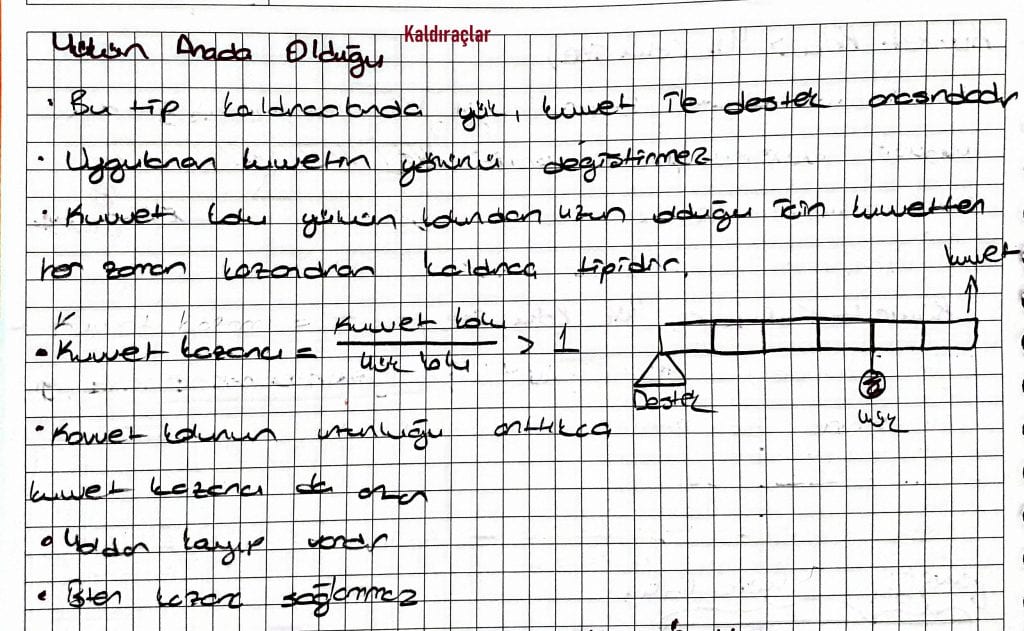 Kaldıraçlar
Yükün Arada Olduğu
• Bu tip kaldıraçlarda yük, kuvvet ile destek arasındadır
• Uygulanan kuvvetin yönünü değiştirmez
• Kuvvet kolu yükün kolundan uzun olduğu için kuvvetten
her zaman kazandıran kaldıraç tipidir.
kuvvet
• Kuvvet kazancı = Kuvvet kolu / Yük kolu > 1
Destek
yük
• Kuvvet kolunun uzunluğu arttıkça
kuvvet kazancı da
• Yoldan kayıp vardır
• İşten kazanç sağlanmaz